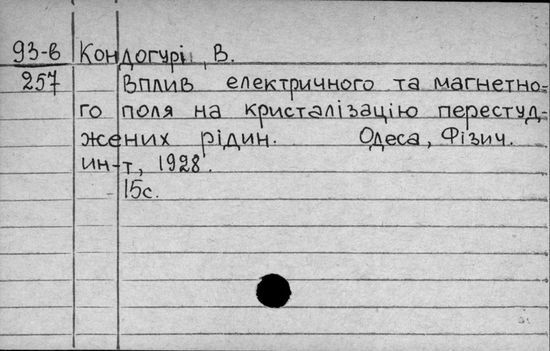 93-в Кондогурі, В.
257 Вплив електричного та магнетно=
го поля на кристалізацію перестуд-
жених рідин. Одеса, Фізич.
ин-т, 1928.
15с.